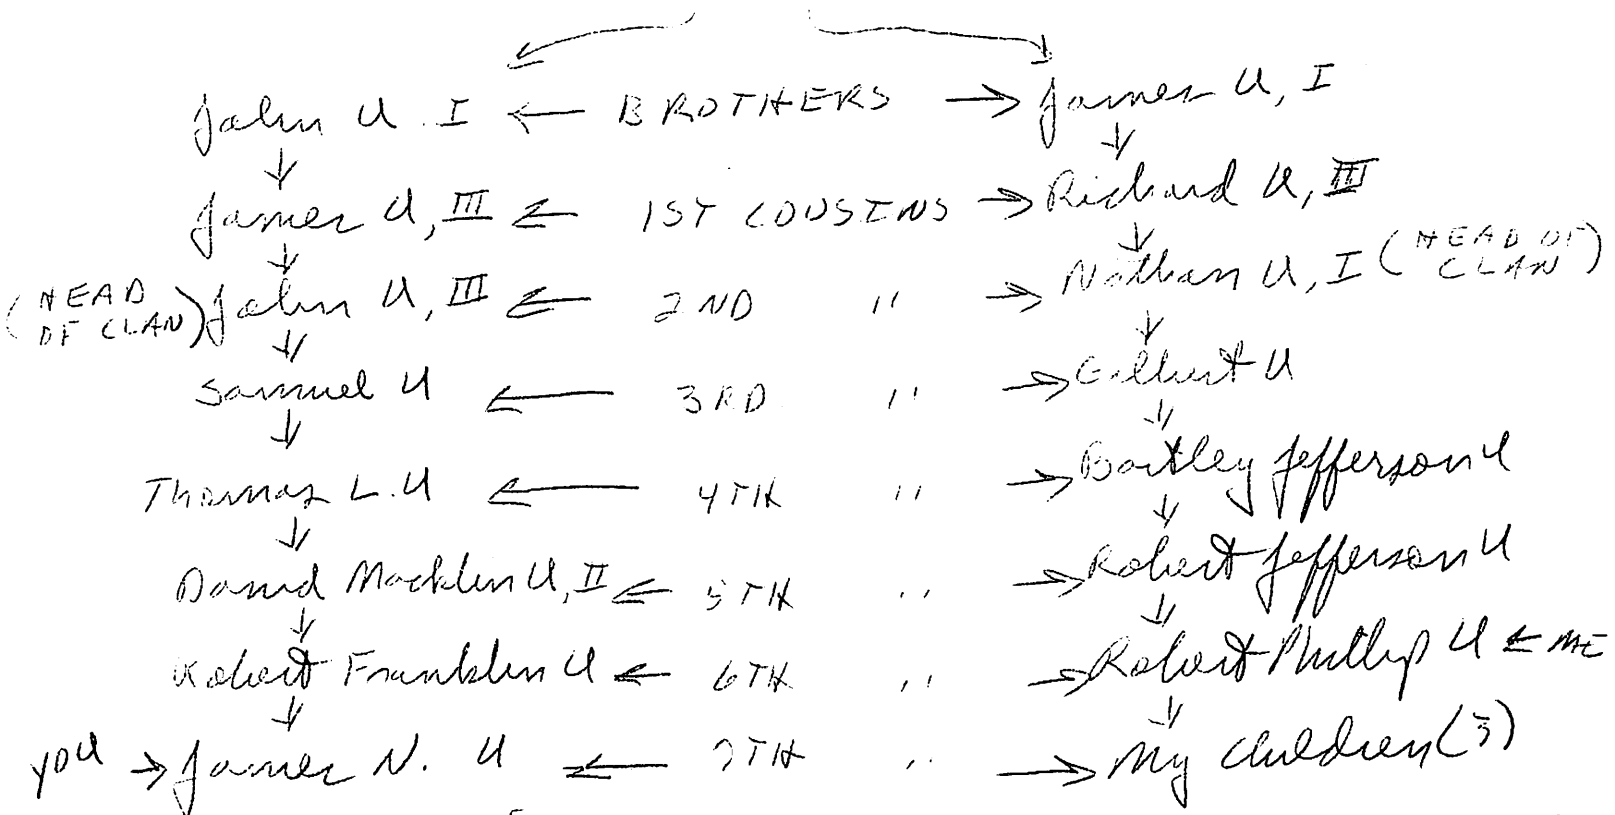 John U. I ← BROTHERS → James U, I
James U, III ← 1ST COUSINS → Richard U, III
(HEAD OF CLAN) John U, III ← 2ND " → Nathan U, I (HEAD OF CLAN)
Samuel U ← 3RD " → Gilbert U
Thomas L. U ← 4TH " → Bartley Jefferson U
David Macklin U, II ← 5TH " → Robert Jefferson U
Robert Franklin U ← 6TH " → Robert Phillip U ← ME
YOU → James N. U ← 7TH " → My children (3)